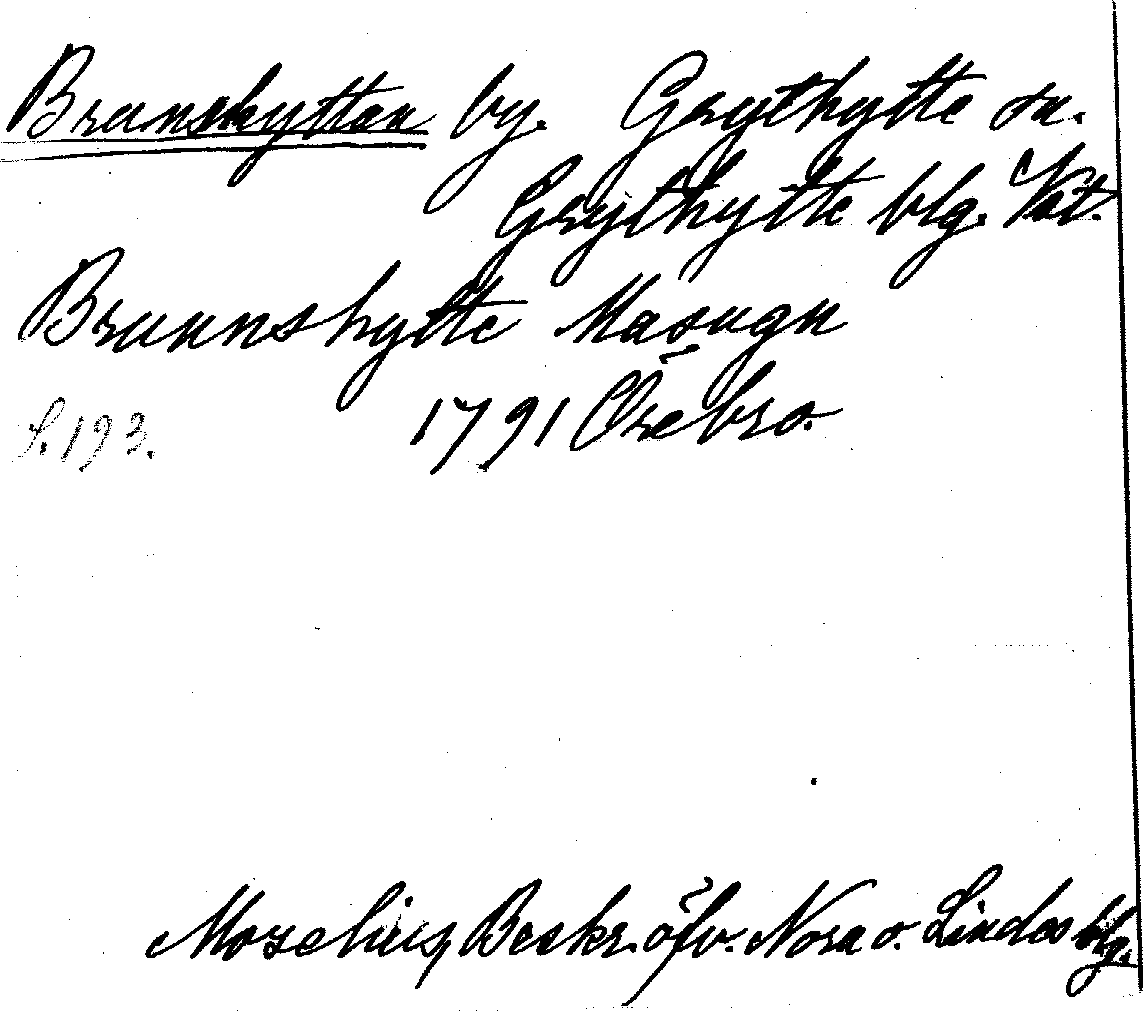 Brunshyttan by. Grythytte sn.
Grythytte blg. Vät.
Brunnshytte Masugn
S. 193. 1791 Örebro.
Mozelius, Beskr. öfv. Nora o. Lindes blg.